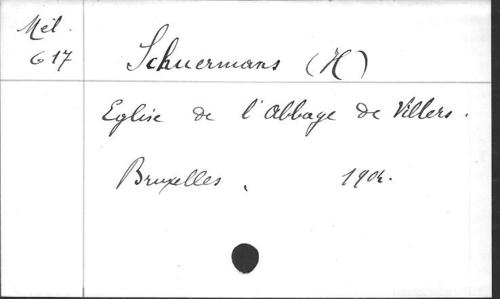 Mél.
617
Schuermans (H)
Eglise de l'abbaye de Villers.
Bruxelles, 1904.